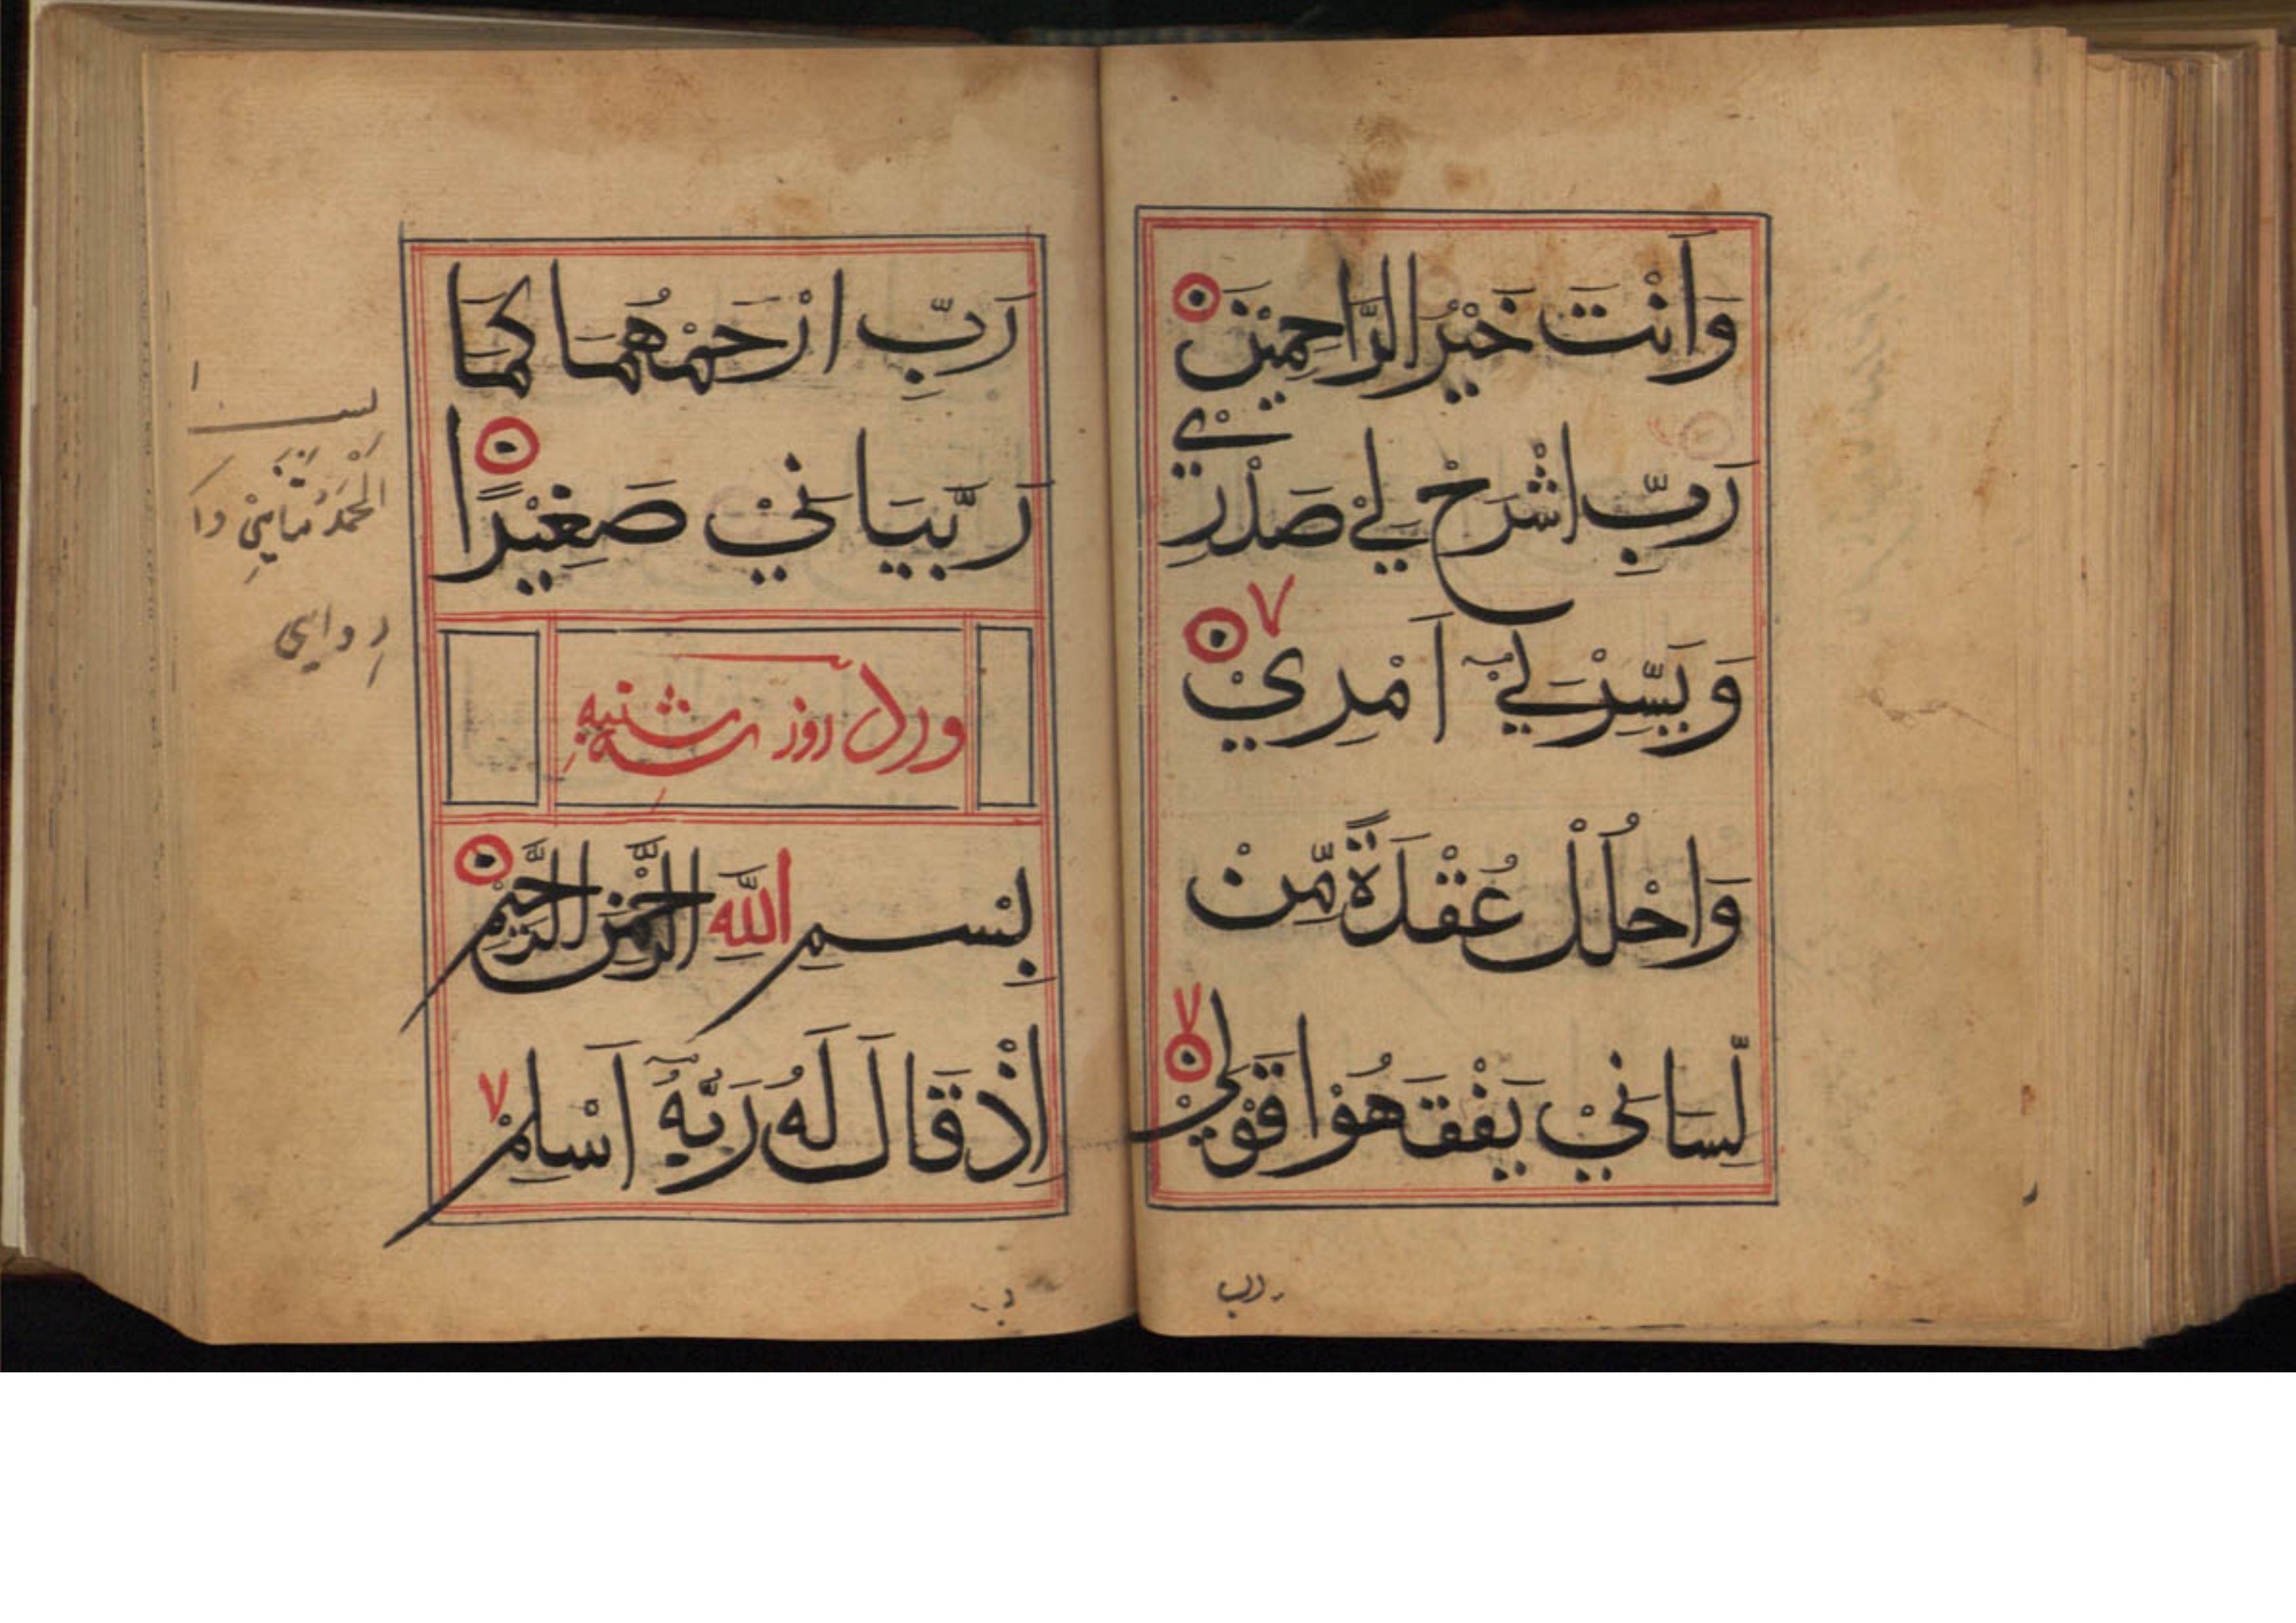 وَاَنْتَ خَيْرُ الرَّاحِمِيْنَ
رَبِّ اشْرَحْ لِيْ صَدْرِيْ
٧
وَيَسِّرْ لِيْٓ اَمْرِيْ
وَاحْلُلْ عُقْدَةً مِّنْ
٧
لِّسَانِيْ يَفْقَهُوْا قَوْلِيْ
رب
رَبِّ ارْحَمْهُمَا كَمَا
رَبَّيَانِيْ صَغِيْرًا
ورد روز سه شنبه
بِسْمِ اللّٰهِ الرَّحْمٰنِ الرَّحِيْمِ
اِذْ قَالَ لَهٗ رَبُّهٗٓ اَسْلِمْ ٧
الحمد